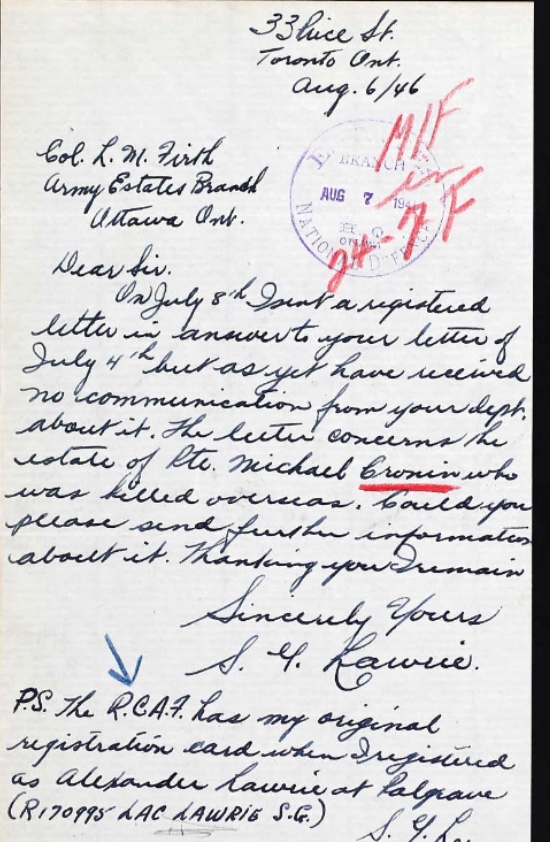 33 Price St.
Toronto Ont.
Aug. 6/46
Col. L. M. Firth
Army Estates Branch
Ottawa Ont.
BRANCH
AUG 7 194
NATIONAL DEFENCE
24-7
Dear Sir.
On July 8th I sent a registered
letter in answer to your letter of
July 4th but as yet have received
no communication from your dept.
about it. The letter concerns the
estate of Pte. Michael Cronin who
was killed overseas. Could you
please send further information
about it. Thanking you I remain
Sincerely Yours
S. G. Lawrie.
P.S. The R.C.A.F. has my original
registration card when I registered
as Alexander Lawrie at Palgrave
(R170995 LAC LAWRIE S.G.)
S. G. La